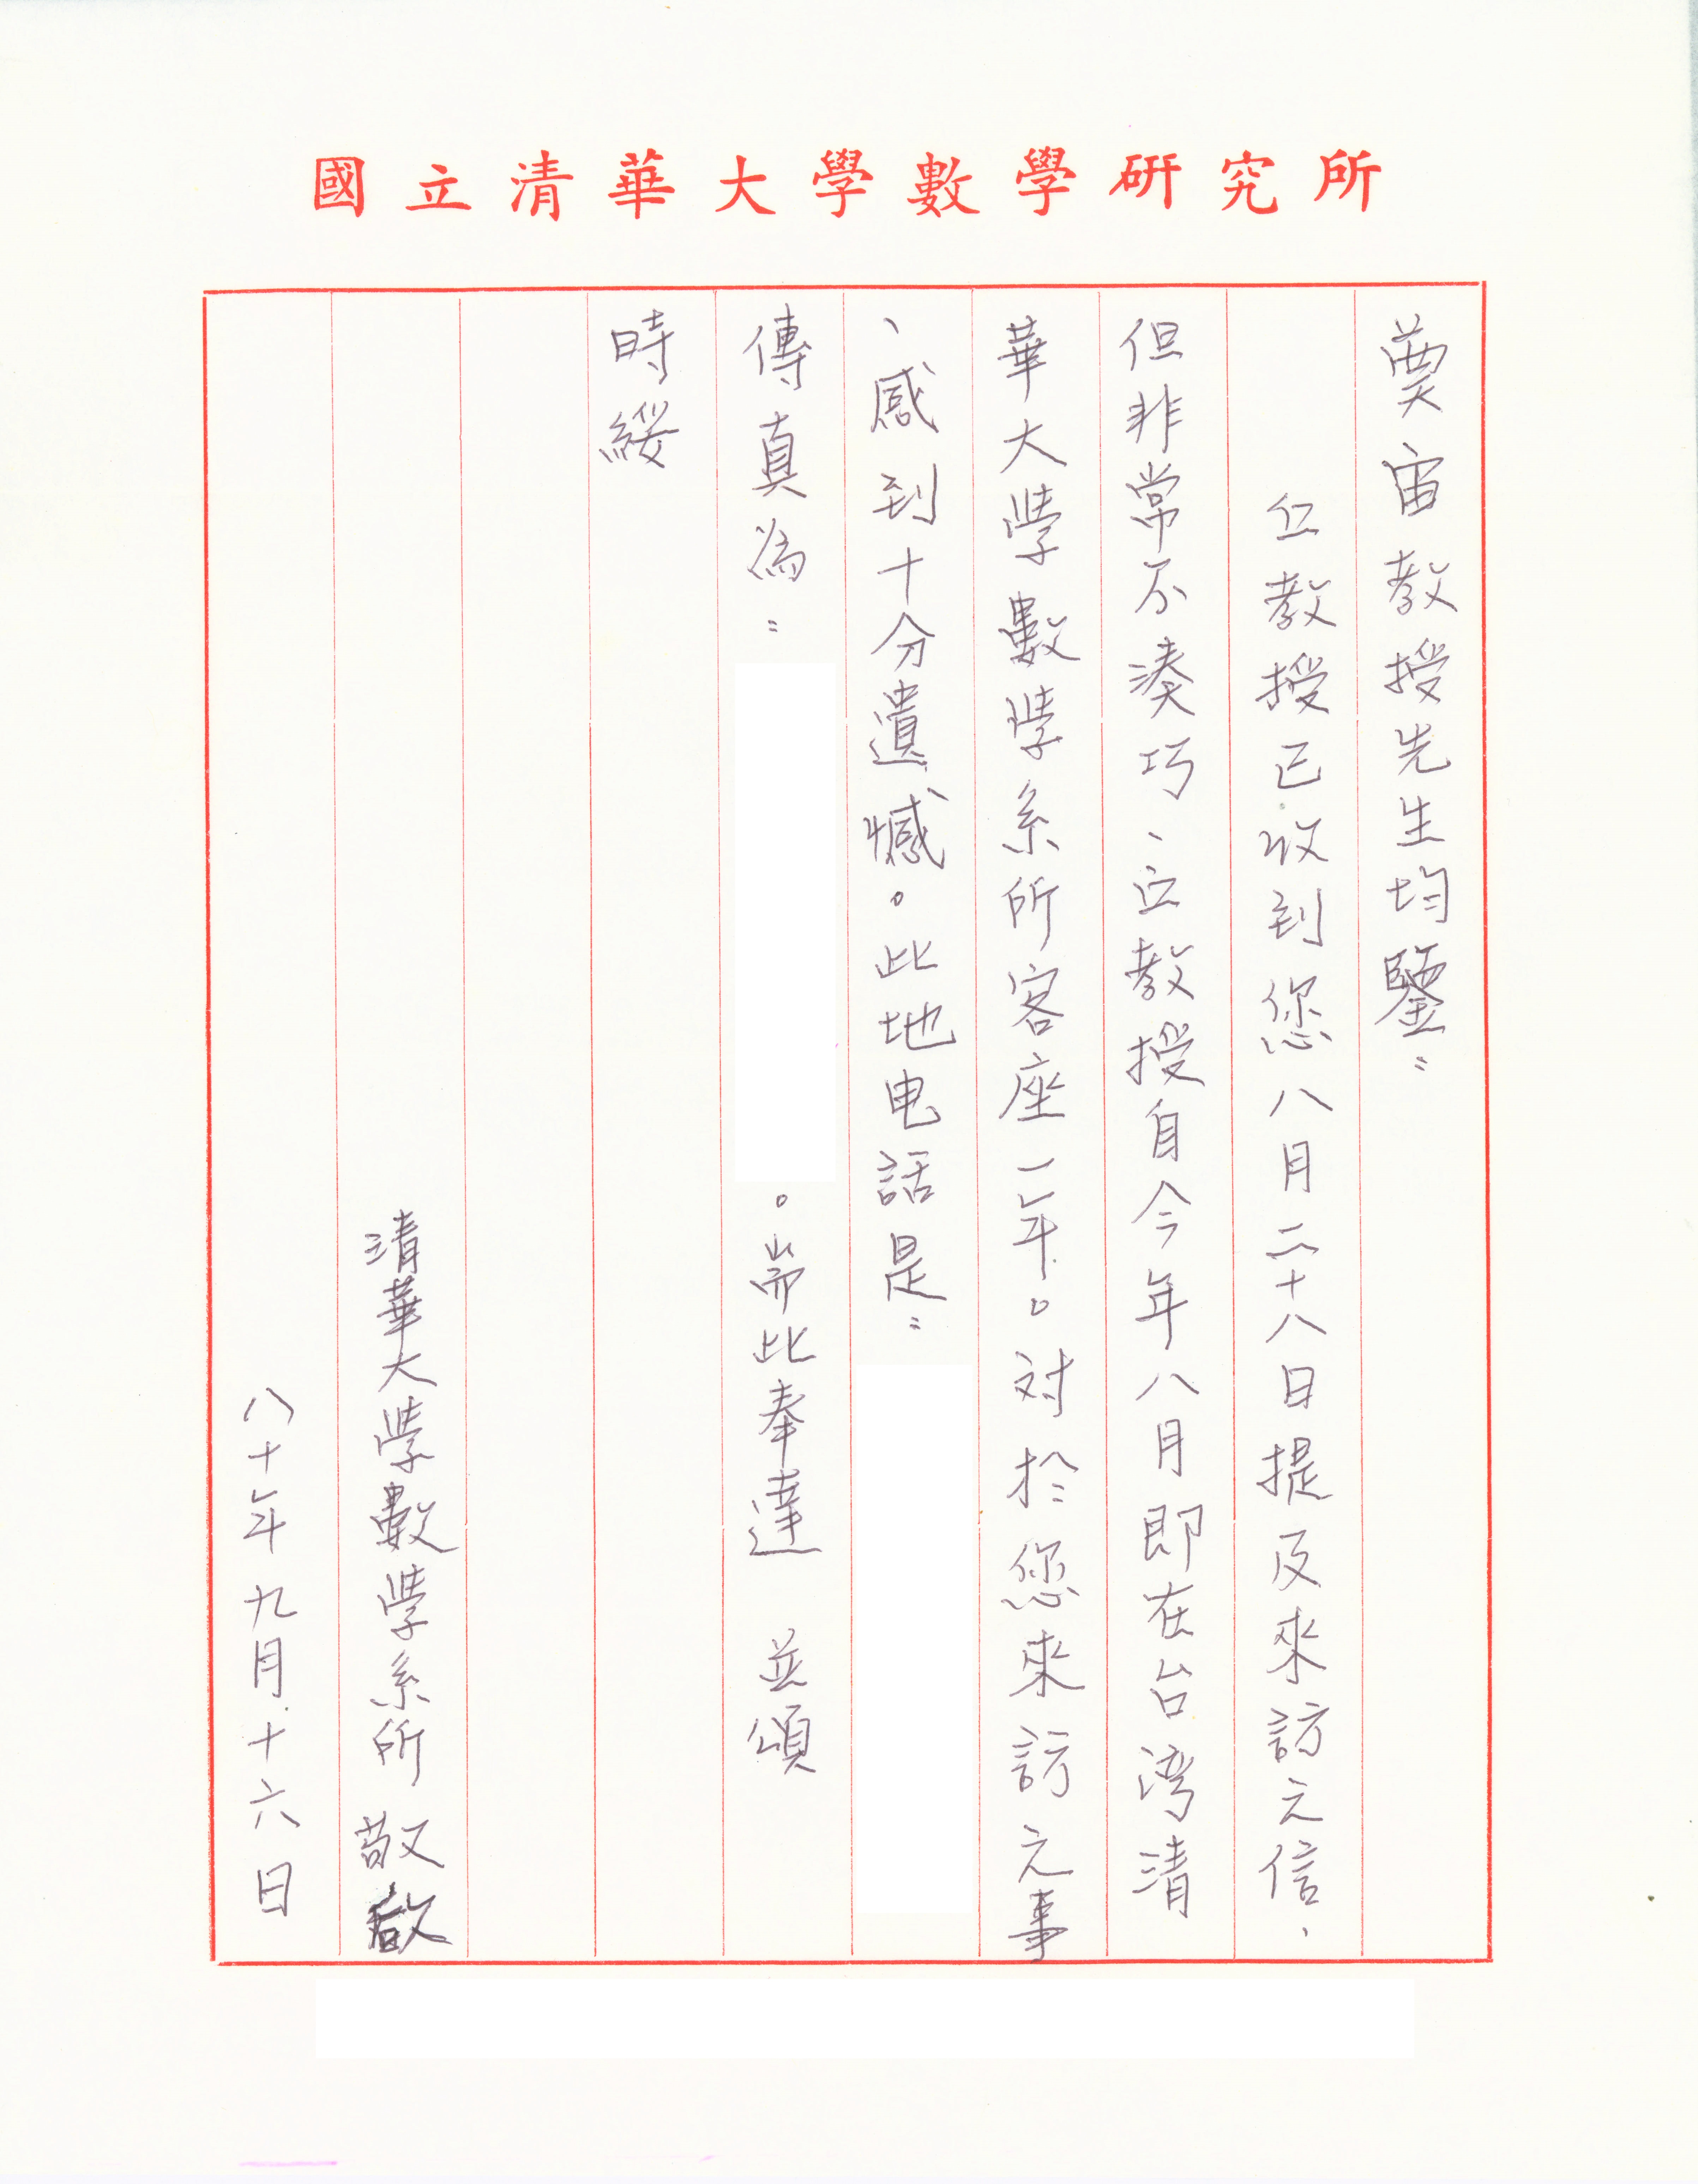 國立清華大學數學研究所
奠宙教授先生均鑒：
丘教授已收到您八月二十八日提及來訪之信，
但非常不湊巧、丘教授自今年八月即在台湾清
華大學數學系所客座一年。対於您來訪之事
、感到十分遺憾。此地电話是：
傳真為：。耑此奉達 並頌
時綏
清華大學數學系所 敬啟
八十年九月十六日